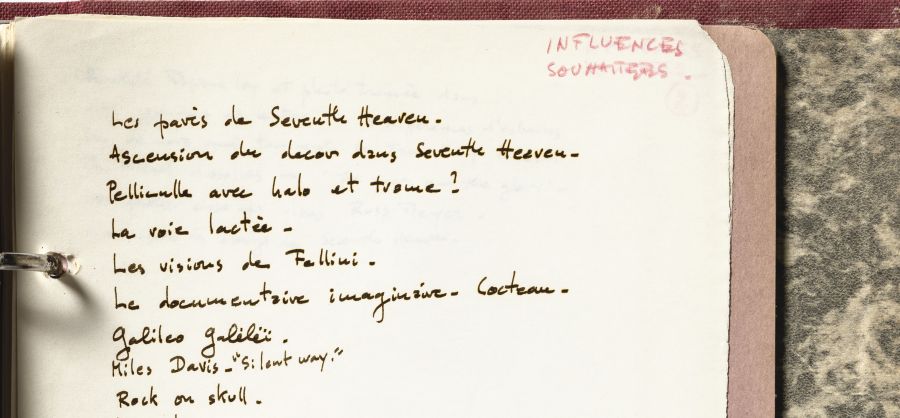 INFLUENCES
SOUHAITEES.
2
Les pavés de Seventh Heaven.
Ascension du decor dans Seventh Heaven.
Pellicule avec halo et trame?
La voie lactée.
Les visions de Fellini.
Le documentaire imaginaire - Cocteau.
Galileo Galileï.
Miles Davis - "Silent way."
Rock on skull.